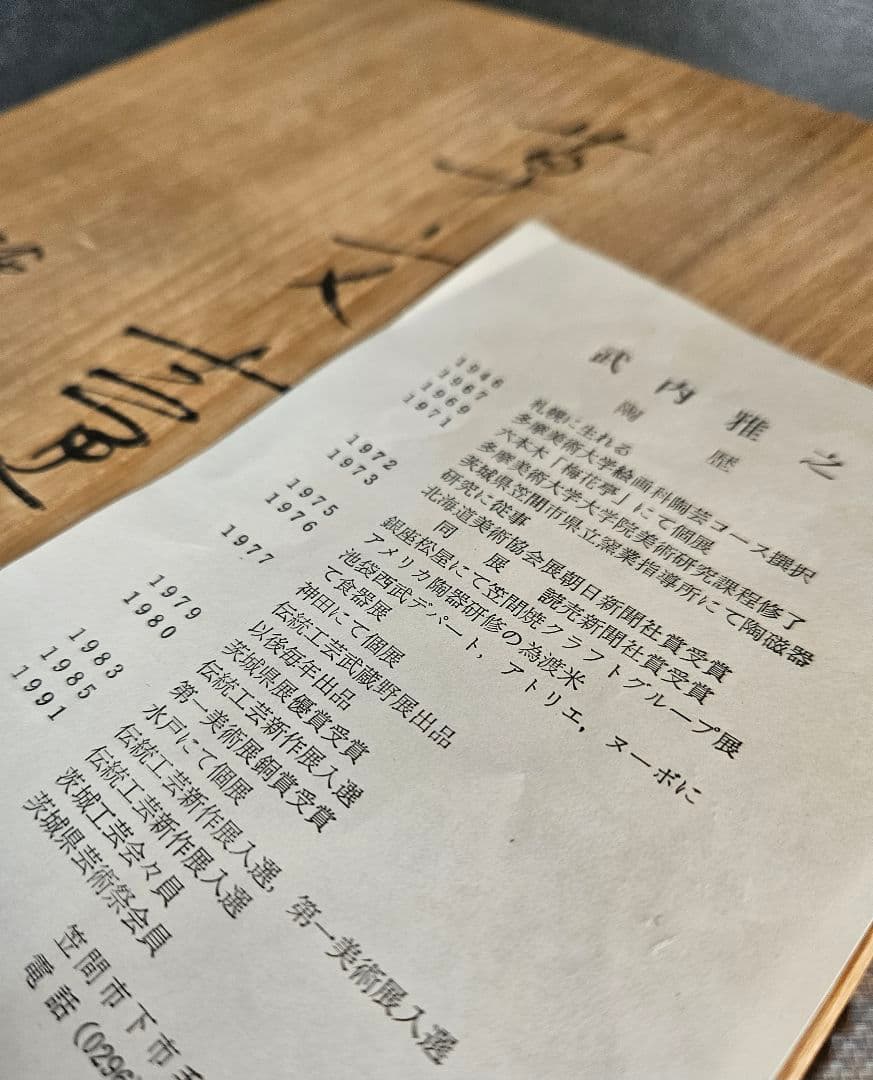 武内雅之
陶歴
1946 札幌に生れる
1967 多摩美術大学絵画科陶芸コース撰択
1969 六本木「梅花亭」にて個展
1971 多摩美術大学大学院美術研究課程修了
茨城県笠間市県立窯業指導所にて陶磁器
研究に従事
1972 北海道美術協会展朝日新聞社賞受賞
1973 同展 読売新聞社賞受賞
銀座松屋にて笠間焼クラフトグループ展
1975 アメリカ陶器研修の為渡米
1976 池袋西武デパート，アトリエ，ヌーボに
て食器展
1977 神田にて個展
伝統工芸武蔵野展出品
以後毎年出品
1979 茨城県展優賞受賞
1980 伝統工芸新作展入選
第一美術展銅賞受賞
1983 水戸にて個展
1985 伝統工芸新作展入選，第一美術展入選
1991 伝統工芸新作展入選
茨城工芸会々員
茨城県芸術祭会員
笠間市下市毛
電話(0296)